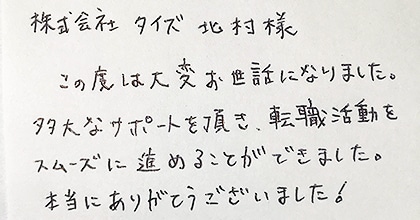 株式会社 タイズ 北村様
この度は大変お世話になりました。
多大なサポートを頂き、転職活動を
スムーズに進めることができました。
本当にありがとうございました!